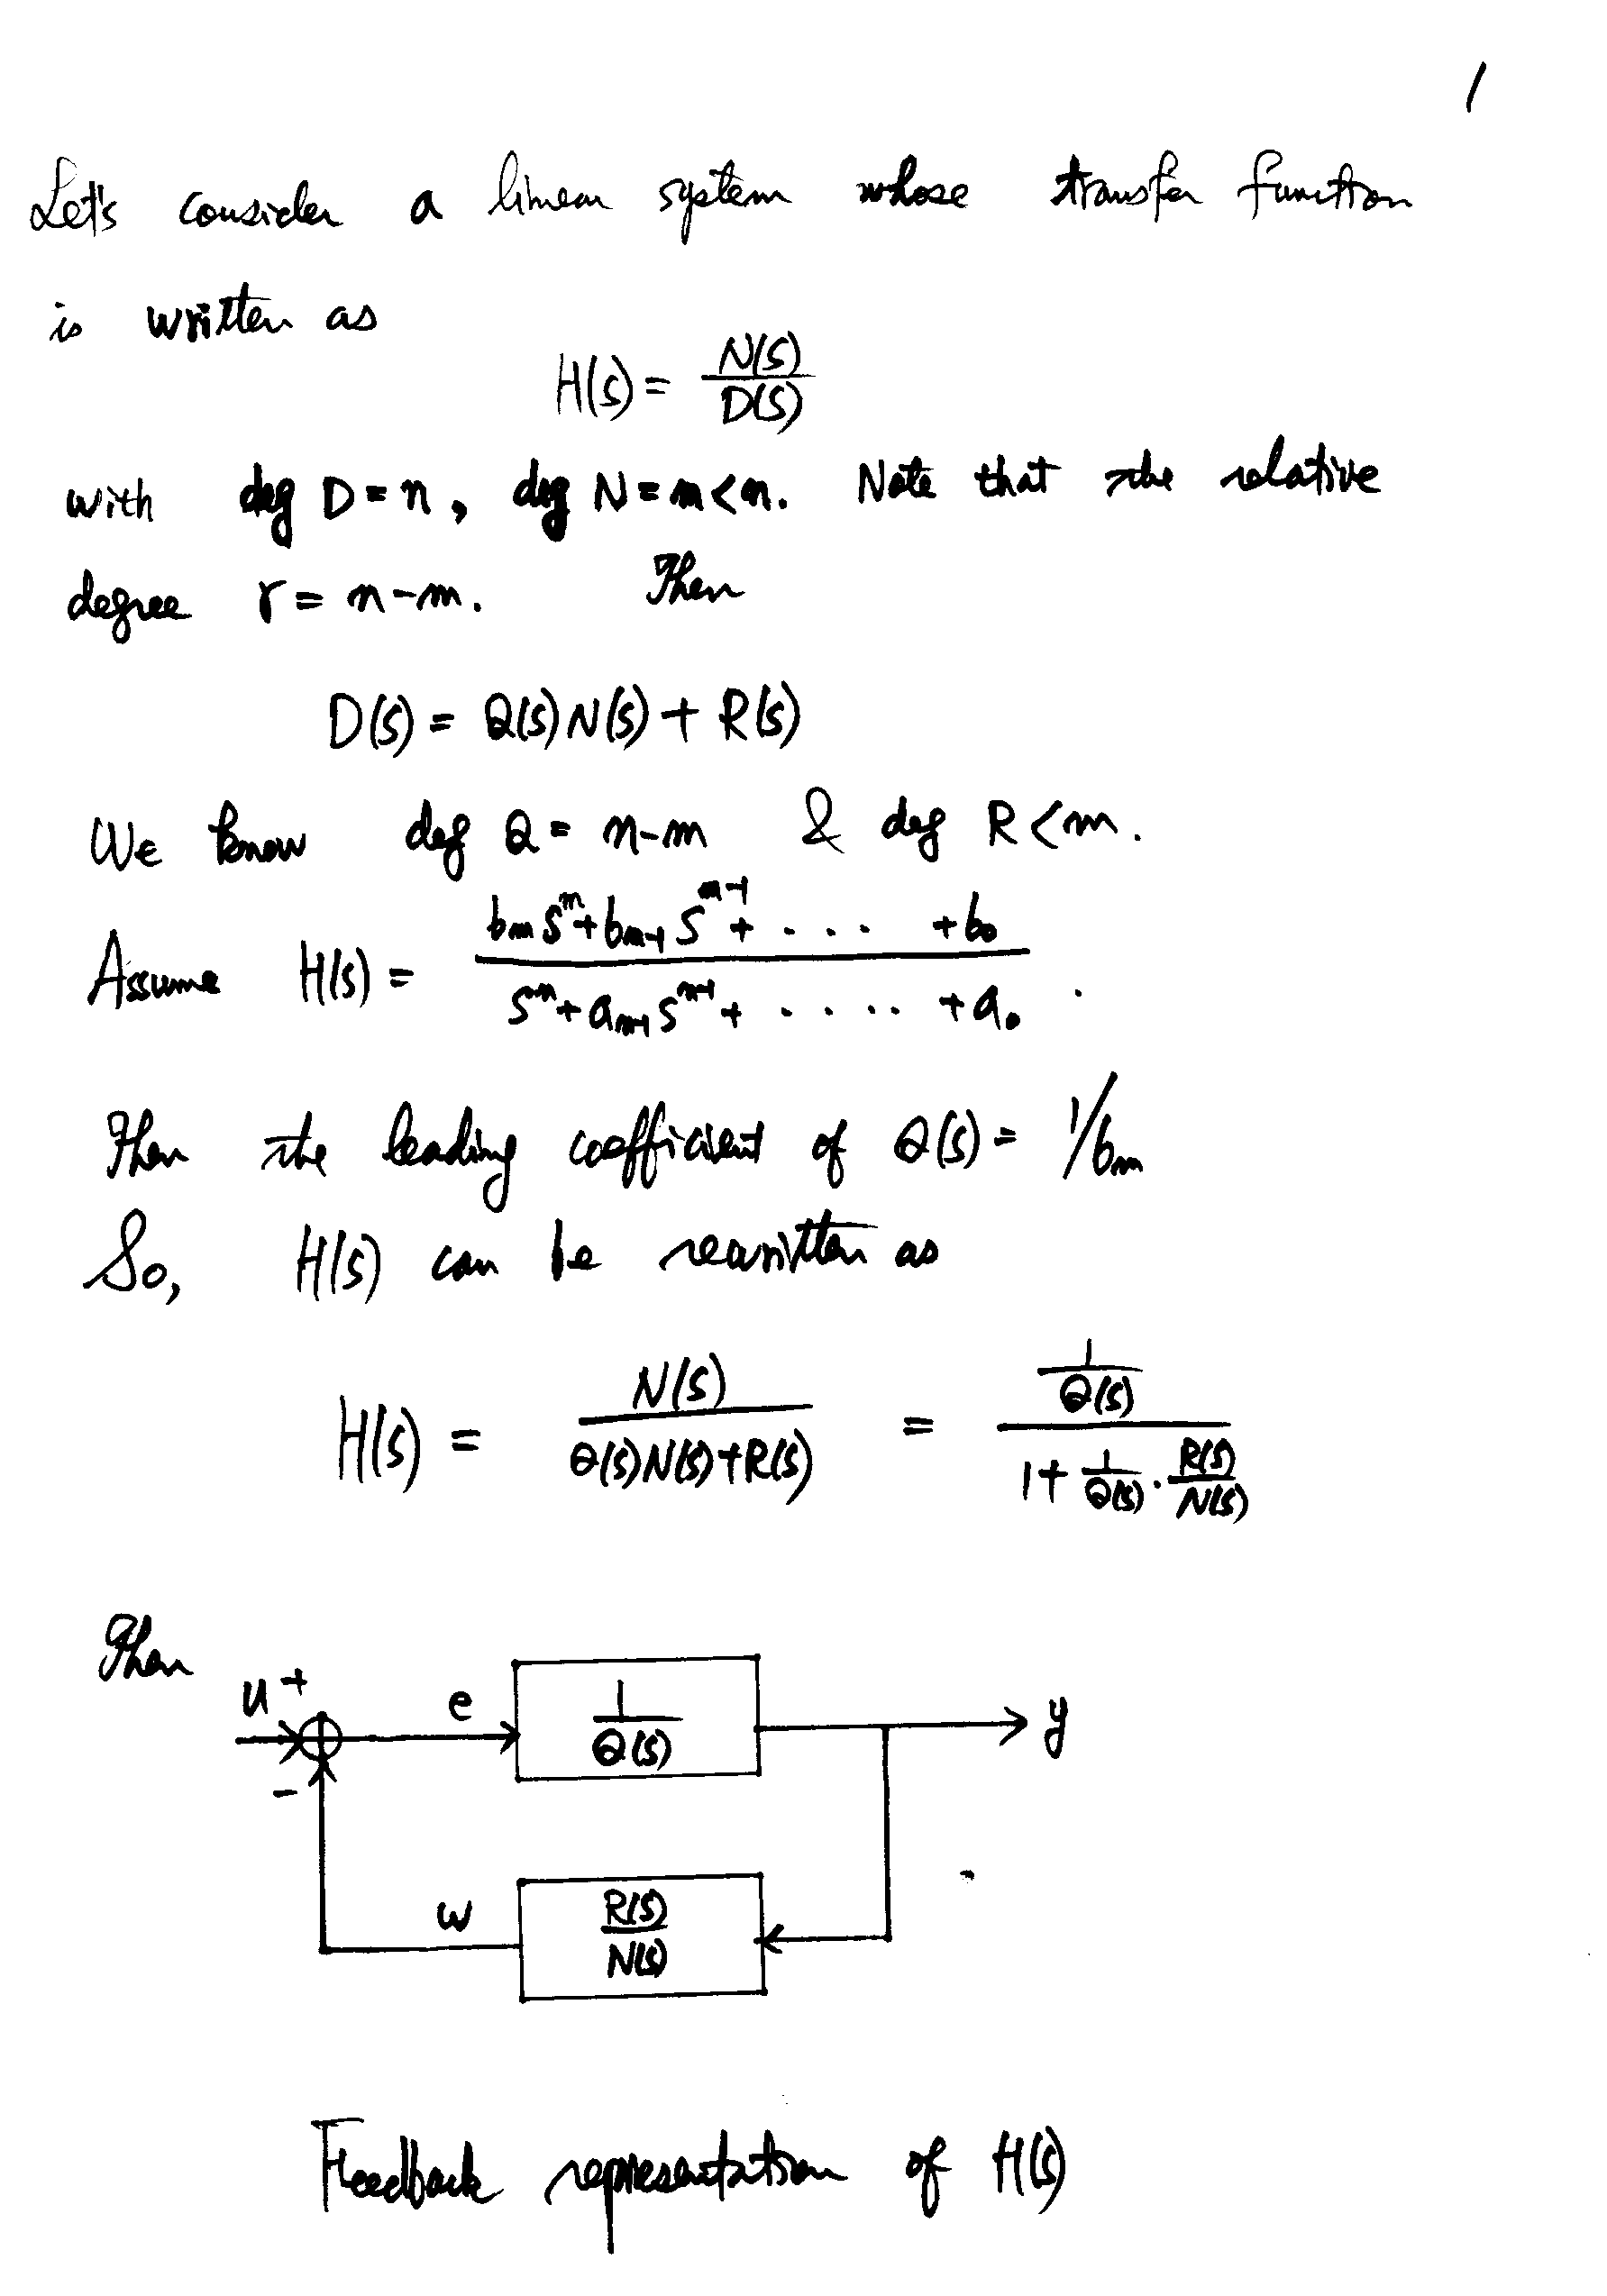 1
Let's consider a linear system whose transfer function
is written as
H(s) = N(s)/D(s)
with deg D = n, deg N = m < n. Note that the relative
degree r = n-m. Then
D(s) = Q(s)N(s) + R(s)
We know deg Q = n-m & deg R < m.
Assume H(s) = (b_m s^m + b_{m-1} s^{m-1} + . . . . + b_0)/(s^n + a_{n-1} s^{n-1} + . . . . . + a_0) .
Then the leading coefficient of Q(s) = 1/b_m
So, H(s) can be rewritten as
H(s) = N(s)/(Q(s)N(s)+R(s)) = (1/Q(s))/(1 + 1/Q(s) · R(s)/N(s))
Then
u + e 1/Q(s) y
-
w R(s)/N(s)
Feedback representation of H(s)